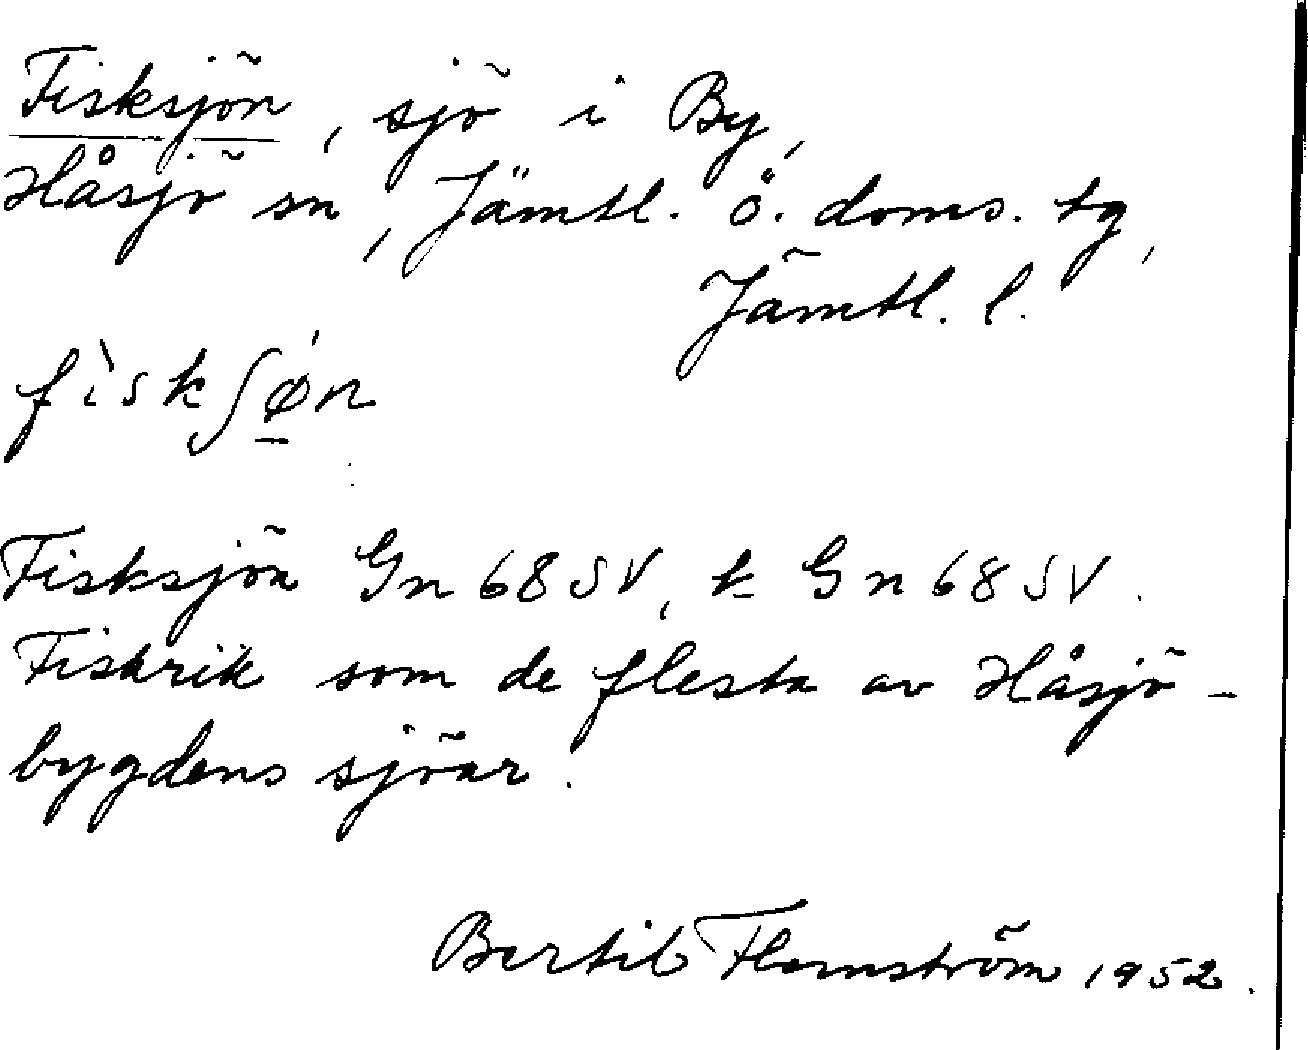 Fisksjön, sjö i By,
Håsjö sn, Jämtl. ö. doms. tg,
Jämtl. l.
fı̀skʃǿ̠n
Fisksjön Gn 68 SV, k Gn 68 SV.
Fiskrik som de flesta av Håsjö-
bygdens sjöar.
Bertil Flemström 1952.